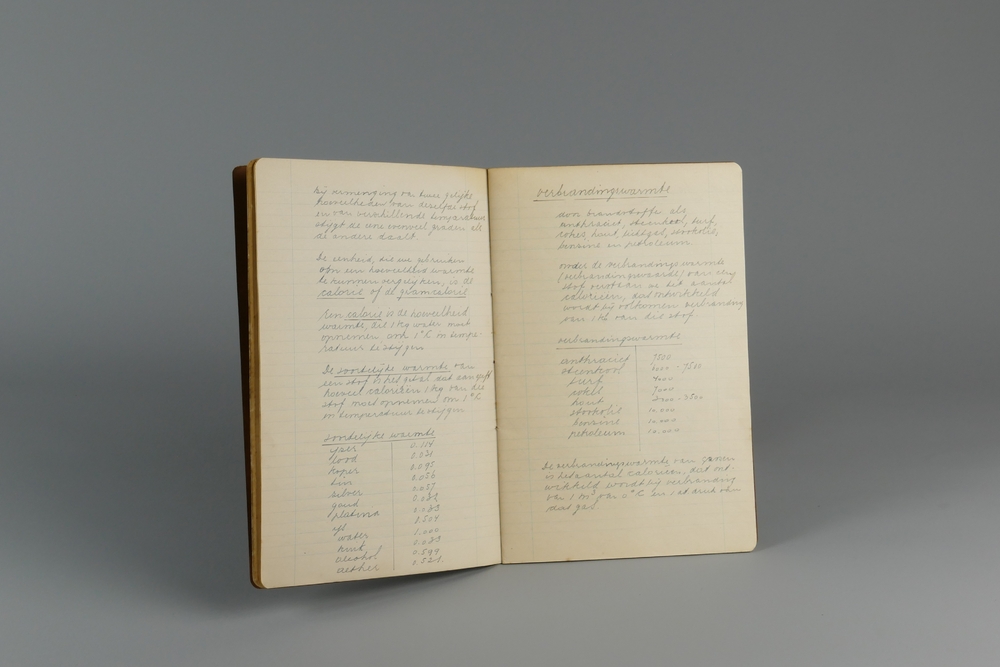 Bij vermenging van twee gelijke
hoeveelheden van dezelfde stof
en van verschillende temperatuur
stijgt de ene evenveel graden als
de andere daalt.
De eenheid, die we gebruiken
om een hoeveelheid warmte
te kunnen vergelijken, is de
calorie of de gramcalorie
Een calorie is de hoeveelheid
warmte, die 1 kg water moet
opnemen om 1°C in tempe-
ratuur te stijgen
De soortelijke warmte van
een stof is het getal dat aangeeft
hoeveel calorieen 1 kg van die
stof moet opnemen om 1°C
in temperatuur te stijgen
soortelijke warmte
ijzer 0.114
lood 0.031
koper 0.095
tin 0.056
zilver 0.057
goud 0.032
platina 0.033
ijs 0.504
water 1.000
kwik 0.033
alcohol 0.599
aether 0.521
verbrandingswarmte
van brandstoffen als
anthraciet, steenkool, turf,
cokes, hout, lichtgas, stookolie,
benzine en petroleum
onder de verbrandingswarmte
(verbrandingswaarde) van een
stof verstaan we het aantal
calorieen, dat ontwikkeld
wordt bij volkomen verbranding
van 1 kg van die stof.
verbrandingswarmte
anthraciet 7500
steenkool 6000 - 7500
turf 4000
cokes 7000
hout 2700 - 3500
stookolie 10.000
benzine 10.000
petroleum 10.000
De verbrandingswarmte van gassen
is het aantal calorieen, dat ont-
wikkeld wordt bij verbranding
van 1 m³ van 0°C en 1 at druk van
dat gas.